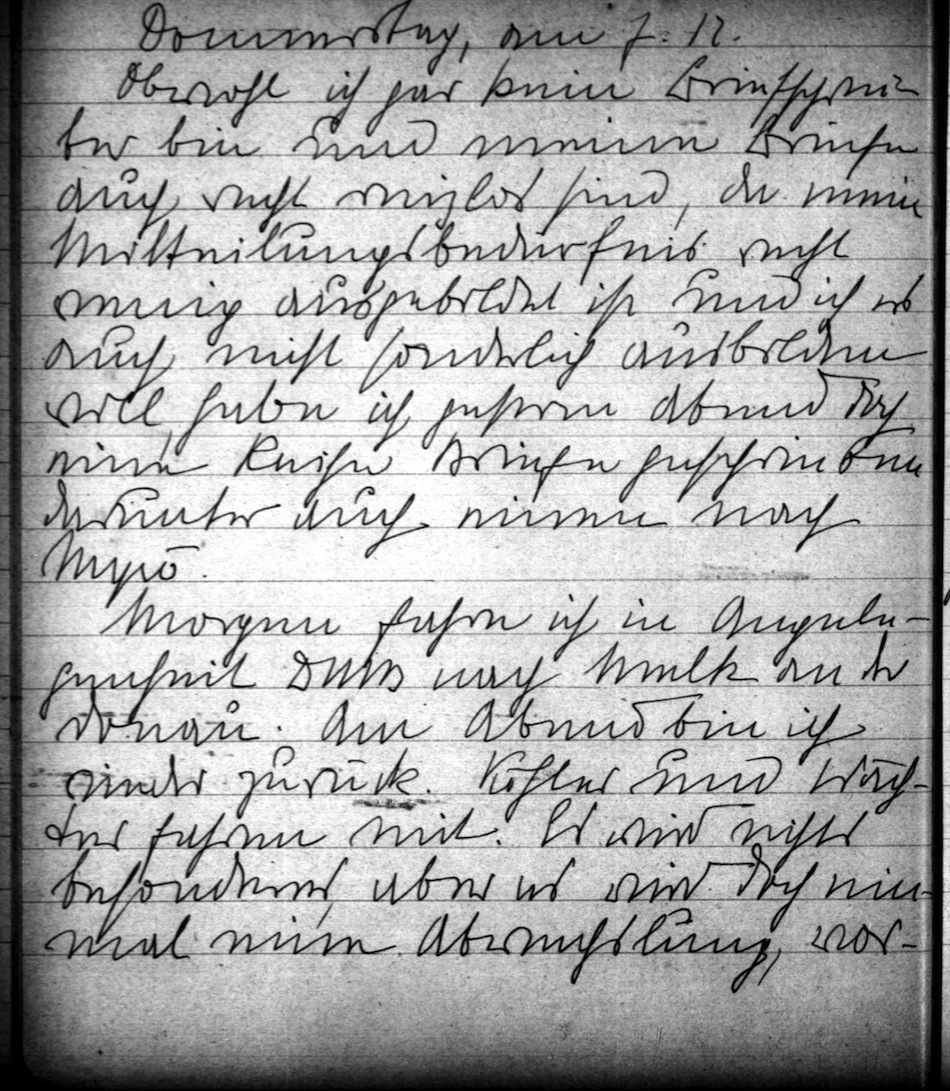 Donnerstag, am 7. 12.
Obwohl ich gar kein Briefschrei-
ber bin und meine Briefe
auch recht reizlos sind, da mein
Mitteilungsbedürfnis recht
wenig ausgebildet ist und ich es
auch nicht sonderlich ausbilden
will, habe ich gestern Abend doch
eine Reihe Briefe geschrieben
darunter auch einen nach
Morgen fahre ich in Angele-
genheit nach Melk an der
Donau. Am Abend bin ich
wieder zurück. Köhler und Wäch-
ter fahren mit. Es wird nichts
besonderes, aber es wird doch ein-
mal eine Abwechslung, vor-